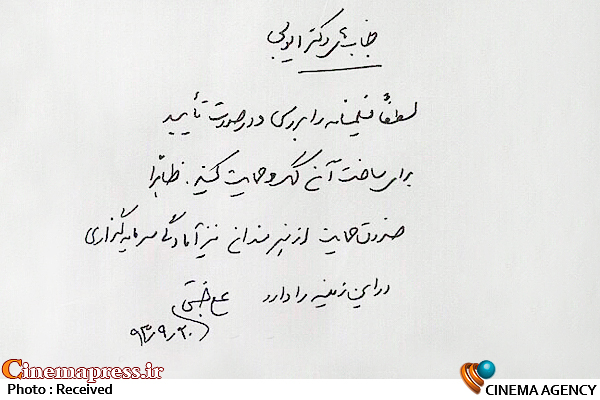 جناب آقای دکتر ایوبی
لطفاً فیلمنامه را بررسی و در صورت تأیید
برای ساخت آن کمک و حمایت کنید. ظاهراً
صندوق حمایت از هنرمندان نیز آمادگی سرمایه‌گزاری
در این زمینه را دارد
۹۳/۹/۲۰
Cinemapress.ir
Photo : Received
CINEMA AGENCY